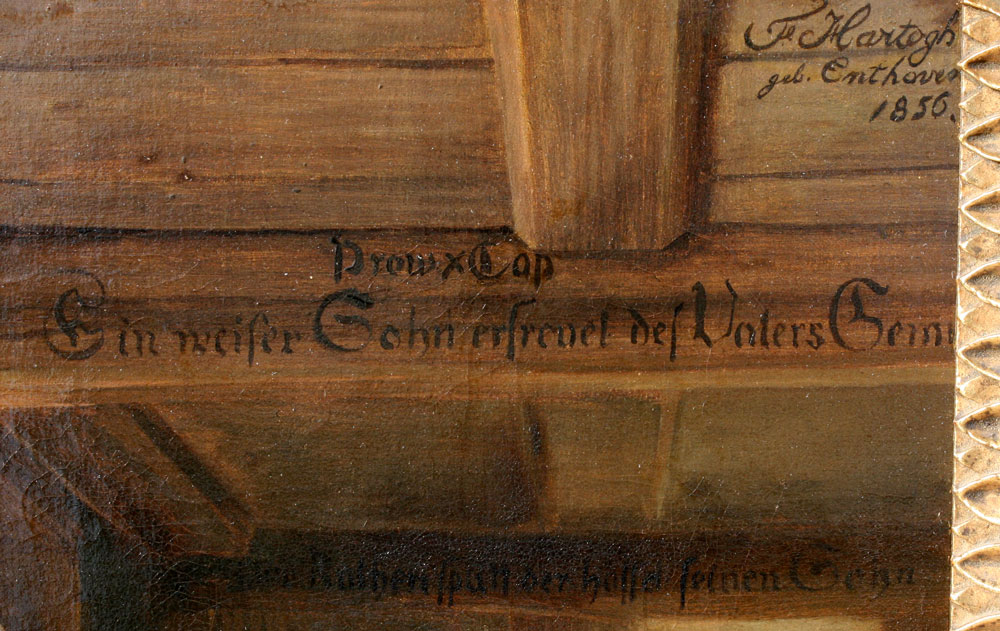 F Hartogh
geb. Enthoven
1856.
Prow x Cap
Ein weiser Sohn erfrevet des Vaters Gemu
Ruthen spart der hasset seinen Sohn